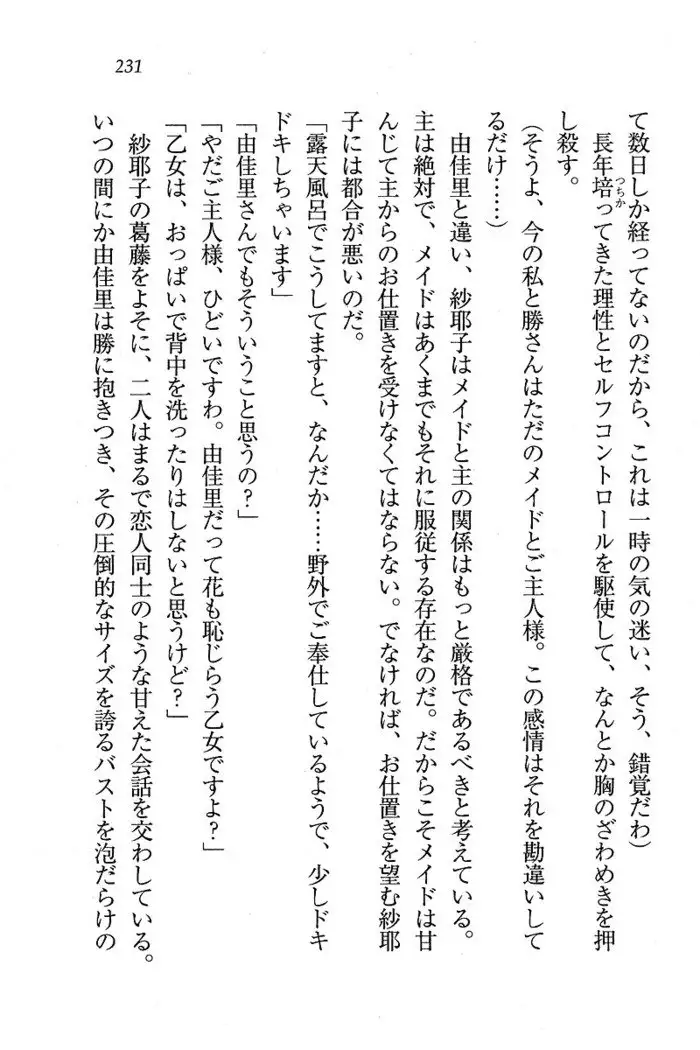 231
て数日しか経ってないのだから、これは一時の気の迷い、そう、錯覚だわ)
長年培ってきた理性とセルフコントロールを駆使して、なんとか胸のざわめきを押
つちか
し殺す。
(そうよ、今の私と勝さんはただのメイドとご主人様。この感情はそれを勘違いして
るだけ……)
由佳里と違い、紗耶子はメイドと主の関係はもっと厳格であるべきと考えている。
主は絶対で、メイドはあくまでもそれに服従する存在なのだ。だからこそメイドは甘
んじて主からのお仕置きを受けなくてはならない。でなければ、お仕置きを望む紗耶
子には都合が悪いのだ。
「露天風呂でこうしてますと、なんだか……野外でご奉仕しているようで、少しドキ
ドキしちゃいます」
「由佳里さんでもそういうこと思うの?」
「やだご主人様、ひどいですわ。由佳里だって花も恥じらう乙女ですよ?」
「乙女は、おっぱいで背中を洗ったりはしないと思うけど?」
紗耶子の葛藤をよそに、二人はまるで恋人同士のような甘えた会話を交わしている。
いつの間にか由佳里は勝に抱きつき、その圧倒的なサイズを誇るバストを泡だらけの